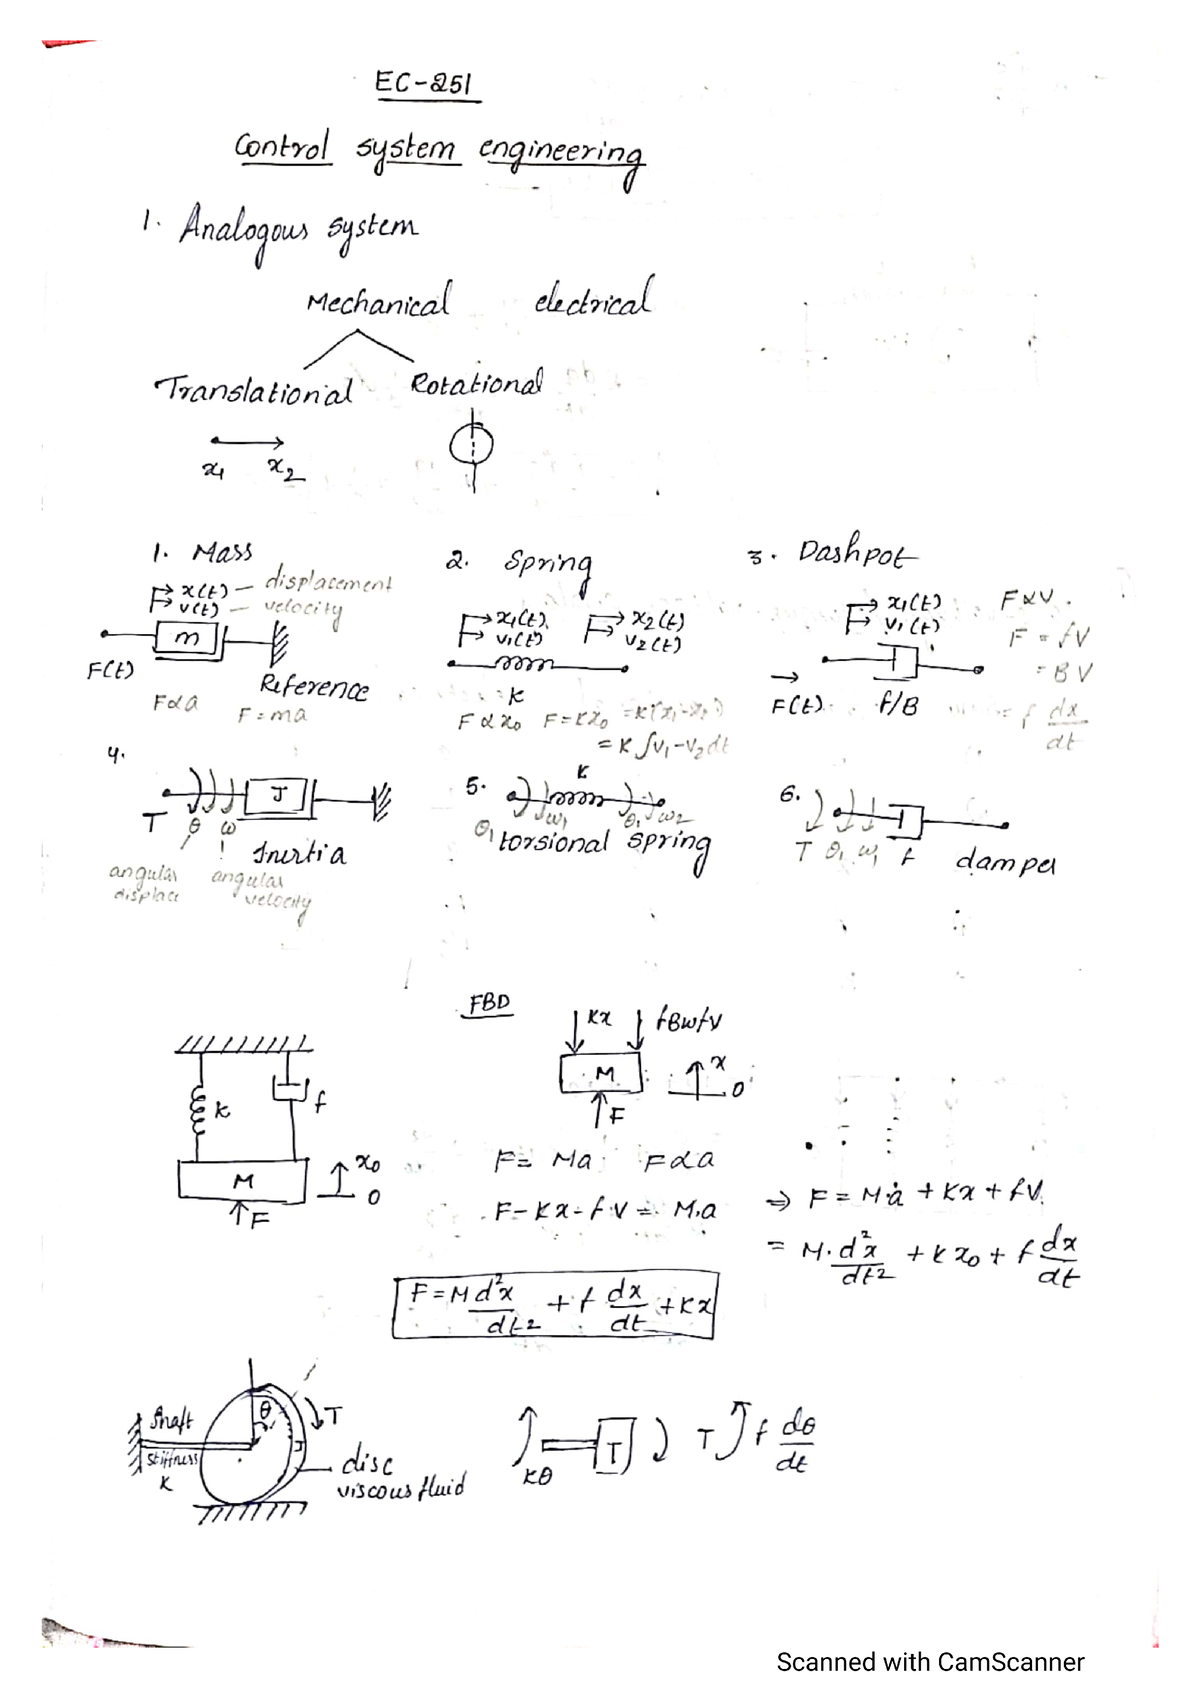 EC-251
Control system engineering
1. Analogous system
Mechanical electrical
Translational Rotational
x1 x2
1. Mass
x(t) — displacement
v(t) — velocity
m
F(t)
Reference
F∝a
F = ma
2. Spring
x1(t) x2(t)
v1(t) v2(t)
K
F ∝ x0 F = Kx0 = K(x1-x2)
= K ∫v1-v2 dt
3. Dashpot
x1(t)
v1(t)
F∝V.
F = fV
= BV
F(t) f/B
= f dx/dt
4.
J
T θ ω
Inertia
angular angular
displace velocity
5. K
θ1 ω1 θ1 ω2
torsional spring
6.
T θ1 ω1 f damper
FBD
Kx
M
x
0
F
K f
M x0
0
F
F = Ma F∝a
F-Kx-f.V = M.a
⇒ F = Mȧ + Kx + fV.
= M. d²x/dt² + K x0 + f dx/dt
F = M d²x/dt² + f dx/dt + Kx
shaft
stiffness
K
θ
T
J
disc
viscous fluid
Kθ
T
T f dθ/dt
Scanned with CamScanner